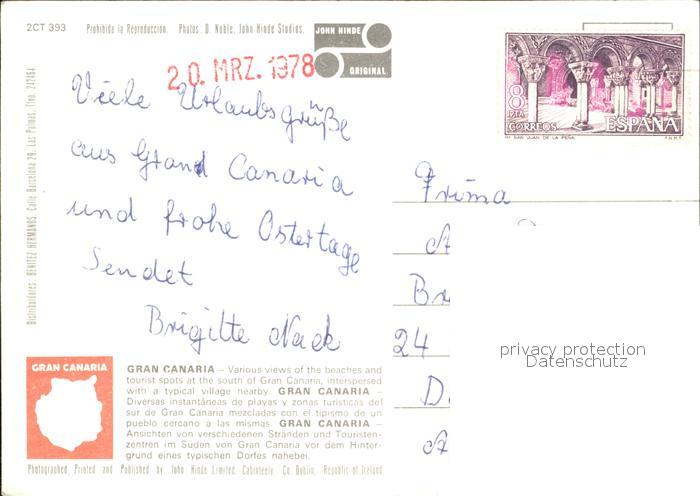 2CT 393 Prohibida la Reproduccion. Photos: D. Noble, John Hinde Studios.
JOHN HINDE
ORIGINAL
20. MRZ. 1978
8
PTA
CORREOS ESPAÑA
Mº SAN JUAN DE LA PEÑA F.N.M.T.
Viele Urlaubsgrüße
aus Grand Canaria
und frohe Ostertage
Sendet
Brigitte Nack
Prima
A
Br
24
D
A
privacy protection
Datenschutz
Distribuidores: BENITEZ HERMANOS, Calle Barcelona 29, Las Palmas, Tfno. 242464
GRAN CANARIA
GRAN CANARIA – Various views of the beaches and
tourist spots at the south of Gran Canaria, interspersed
with a typical village nearby. GRAN CANARIA –
Diversas instantáneas de playas y zonas turisticas del
sur de Gran Canaria mezcladas con el tipismo de un
pueblo cercano a las mismas. GRAN CANARIA –
Ansichten von verschiedenen Stränden und Touristen-
zentren im Süden von Gran Canaria vor dem Hinter-
grund eines typischen Dorfes nahebei.
Photographed, Printed and Published by John Hinde Limited, Cabinteely, Co. Dublin, Republic of Ireland